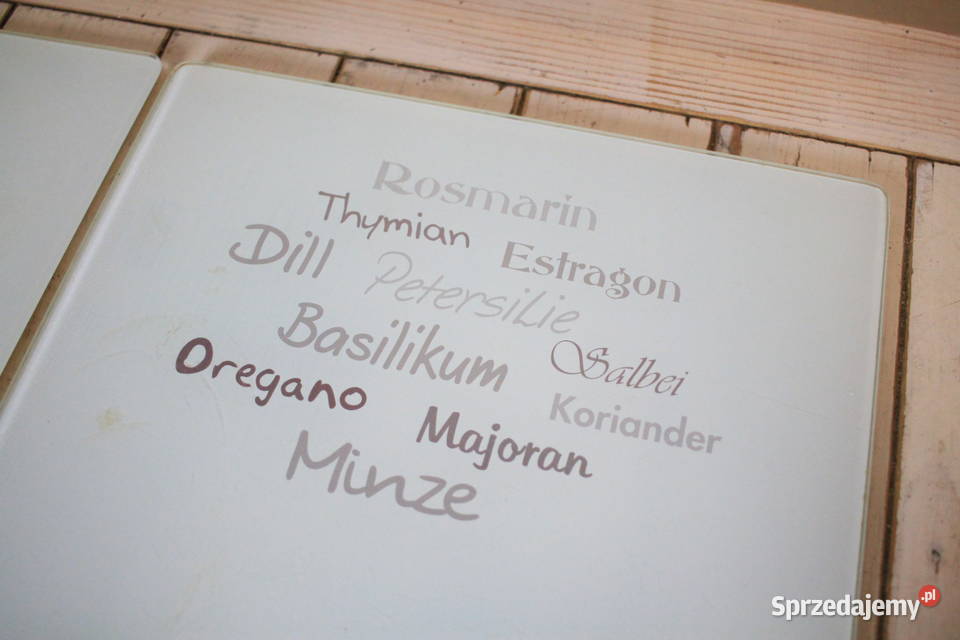 Rosmarin
Thymian Estragon
Dill PetersiLie
Basilikum Salbei
Oregano Koriander
Majoran
Minze
Sprzedajemy.pl